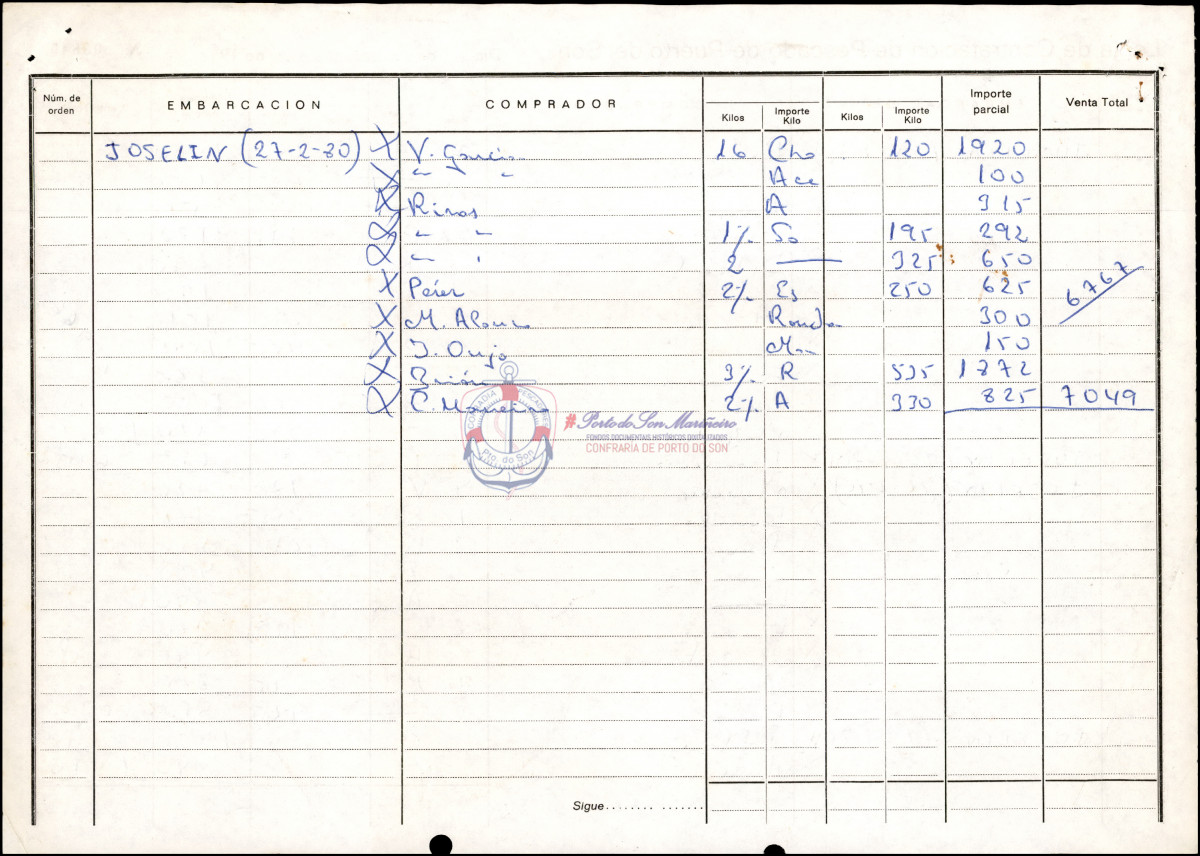 Núm. de orden EMBARCACION COMPRADOR Kilos Importe Kilo Kilos Importe Kilo Importe parcial Venta Total
JOSELIN (27-2-80) X V. García 16 Cho 120 1920
X " " Ace 100
X Rivas A 315
X " " 1½ So 195 292
X " " 2 —— 325 650
X Pérez 2½ Es 250 625 6767
X M. Alonso Roncha 300
X J. Oujo 150
X Brión 3½ R 535 1872
X C. Maneiro 2½ A 330 825 7049
COFRADIA PESCADORES
Pto. do Son
#Porto do Son Mariñeiro
FONDOS DOCUMENTAIS HISTÓRICOS DIXITALIZADOS
CONFRARÍA DE PORTO DO SON
Sigue........ .......